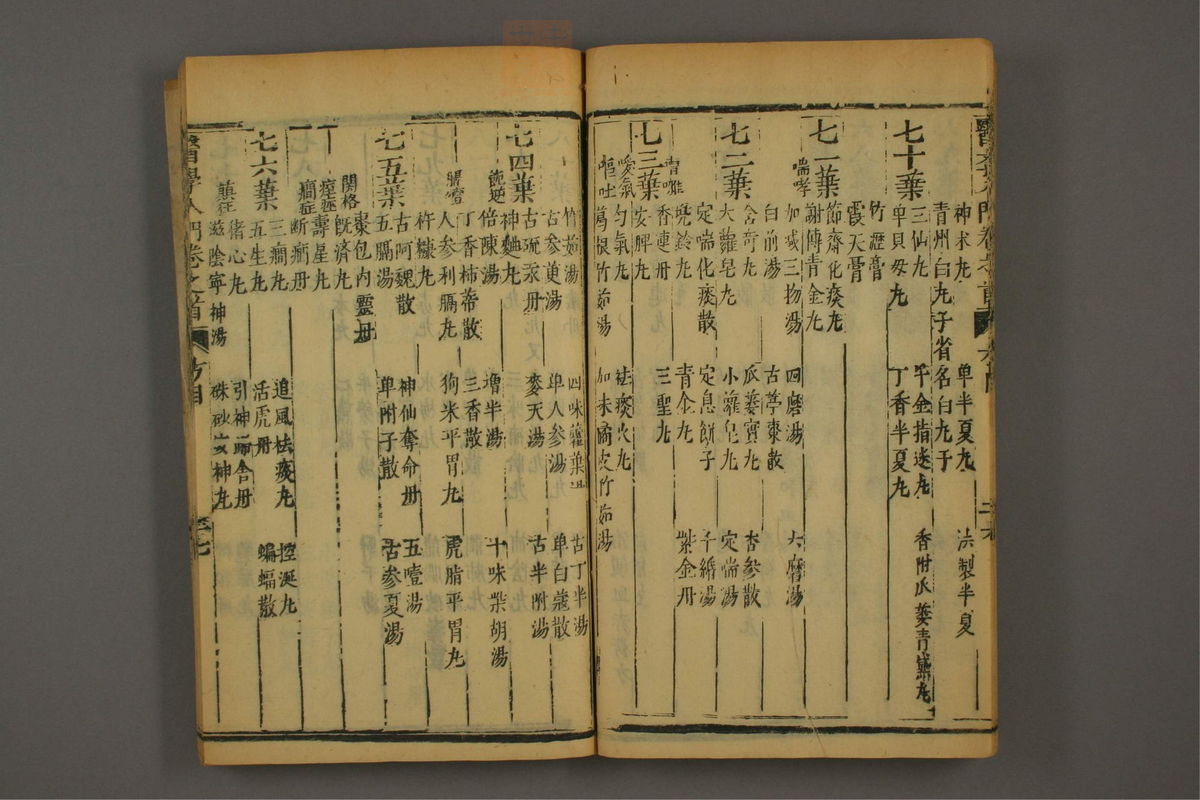 神术丸 單半夏丸 法製半夏
青州白丸子 省名白丸子
七十葉
三仙丸 千金指迷丸 香附瓜蔞青黛丸
单貝母丸 丁香半夏丸
竹瀝膏
霞天膏
七一葉
節齋化痰丸
喘哮
謝傳青金丸
加減三抝湯 四磨湯 六磨湯
白前湯 古葶棗散 杏參散
七二葉
含奇丸 瓜蔞實丸 定喘湯
大蘿皂丸 小蘿皂丸 千緡湯
定喘化痰散 定息餅子 紫金丹
兠鈴丸 青金丸
香連丹 三聖丸
七三葉
安脾丸
噯氣
勻氣丸 祛痰火丸
嘔吐
葛根竹茹湯 加味橘皮竹茹湯
竹茹湯 四味藿葉 古丁半湯
古参萸湯 单人参湯 单白蔻散
七四葉
古硫汞丹 麥天湯 古半附湯
神麯丸
倍陳湯 增半湯 十味柴胡湯
丁香柿蒂散 三香散
膈噎
人參利膈丸 狗米平胃丸 虎脂平胃丸
杵糠丸
七五葉
古阿魏散 神仙奪命丹 五噎湯
五膈湯 单附子散 古参夏湯
棗包內靈丹
関格
旣濟丸
壽星丸
癎症
断癎丹
七六葉
三癎丸 追風祛痰丸 控涎丸
五生丸 活虎丹 蝙蝠散
猪心丸 引神歸舍丹
滋陰寧神湯 硃砂安神丸
醫學入門卷之首 方目 三七